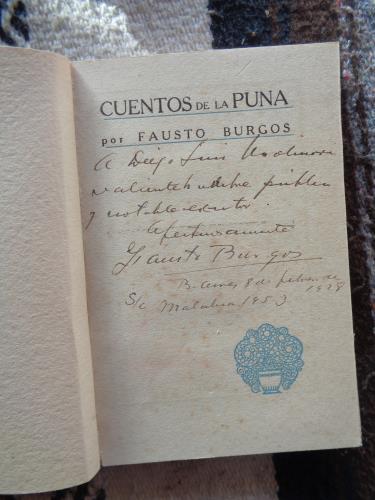 CUENTOS DE LA PUNA
por FAUSTO BURGOS
A Diego Luis Molinari
valiente hombre público
y notable escritor.
Afectuosamente
Fausto Burgos
B. Aires 8 de febrero de
1928
S/c Malabia 1953